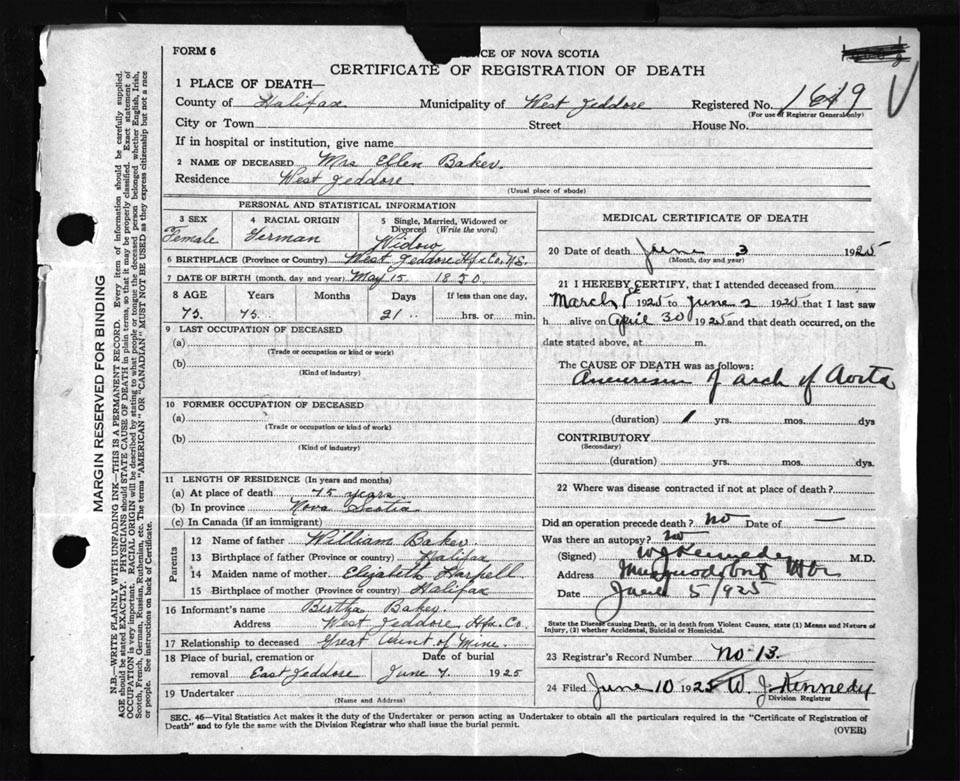 FORM 6
CE OF NOVA SCOTIA
CERTIFICATE OF REGISTRATION OF DEATH
1 PLACE OF DEATH—
County of Halifax Municipality of West Jeddore Registered No. 1619
(For use of Registrar General only)
City or Town Street House No.
If in hospital or institution, give name
2 NAME OF DECEASED Mrs Ellen Baker.
Residence West Jeddore
(Usual place of abode)
PERSONAL AND STATISTICAL INFORMATION
3 SEX 4 RACIAL ORIGIN 5 Single, Married, Widowed or Divorced (Write the word)
Female German Widow
6 BIRTHPLACE (Province or Country) West Jeddore Hfx Co. N.S.
7 DATE OF BIRTH (month, day and year) May 15 1850
8 AGE Years Months Days If less than one day,
75. 75. 21 .. hrs. or min.
9 LAST OCCUPATION OF DECEASED
(a)
(Trade or occupation or kind or work)
(b)
(Kind of industry)
10 FORMER OCCUPATION OF DECEASED
(a)
(Trade or occupation or kind of work)
(b)
(Kind of industry)
11 LENGTH OF RESIDENCE (In years and months)
(a) At place of death 75 years
(b) In province Nova Scotia
(c) In Canada (if an immigrant)
Parents
12 Name of father William Baker
13 Birthplace of father (Province or country) Halifax
14 Maiden name of mother Elizabeth Harpell
15 Birthplace of mother (Province or country) Halifax
16 Informant's name Birtha Baker
Address West Jeddore Hfx. Co.
17 Relationship to deceased Great Aunt of Mine.
18 Place of burial, cremation or removal East Jeddore Date of burial June 7 1925
19 Undertaker
(Name and Address)
MEDICAL CERTIFICATE OF DEATH
20 Date of death June 3 1925
(Month, day and year)
21 I HEREBY CERTIFY, that I attended deceased from
March 1st 1925 to June 2 1925 that I last saw
h alive on April 30 1925 and that death occurred, on the
date stated above, at m.
The CAUSE OF DEATH was as follows:
Aneurism of arch of Aorta
(duration) 1 yrs. mos. dys
CONTRIBUTORY
(Secondary)
(duration) yrs. mos. dys.
22 Where was disease contracted if not at place of death?
Did an operation precede death? no Date of —
Was there an autopsy? no
(Signed) W J Kennedy M.D.
Address Musquodoboit Hbr
Date June 5/925
State the Disease causing Death, or in death from Violent Causes, state (1) Means and Nature of
Injury, (2) whether Accidental, Suicidal or Homicidal.
23 Registrar's Record Number no 13.
24 Filed June 10 1925 W. J. Kennedy
Division Registrar
SEC. 46—Vital Statistics Act makes it the duty of the Undertaker or person acting as Undertaker to obtain all the particulars required in the "Certificate of Registration of
Death" and to fyle the same with the Division Registrar who shall issue the burial permit.
(OVER)
MARGIN RESERVED FOR BINDING
N.B.—WRITE PLAINLY WITH UNFADING INK—THIS IS A PERMANENT RECORD. Every item of information should be carefully supplied.
AGE should be stated EXACTLY. PHYSICIANS should STATE CAUSE OF DEATH in plain terms, so that it may be properly classified. Exact statement of
OCCUPATION is very important. RACIAL ORIGIN will be described by stating to what people or tongue the deceased person belonged whether English, Irish,
Scotch, French, German, Russian, Ruthenian, etc. The terms "AMERICAN" OR "CANADIAN" MUST NOT BE USED as they express citizenship but not a race
or people. See instructions on back of Certificate.